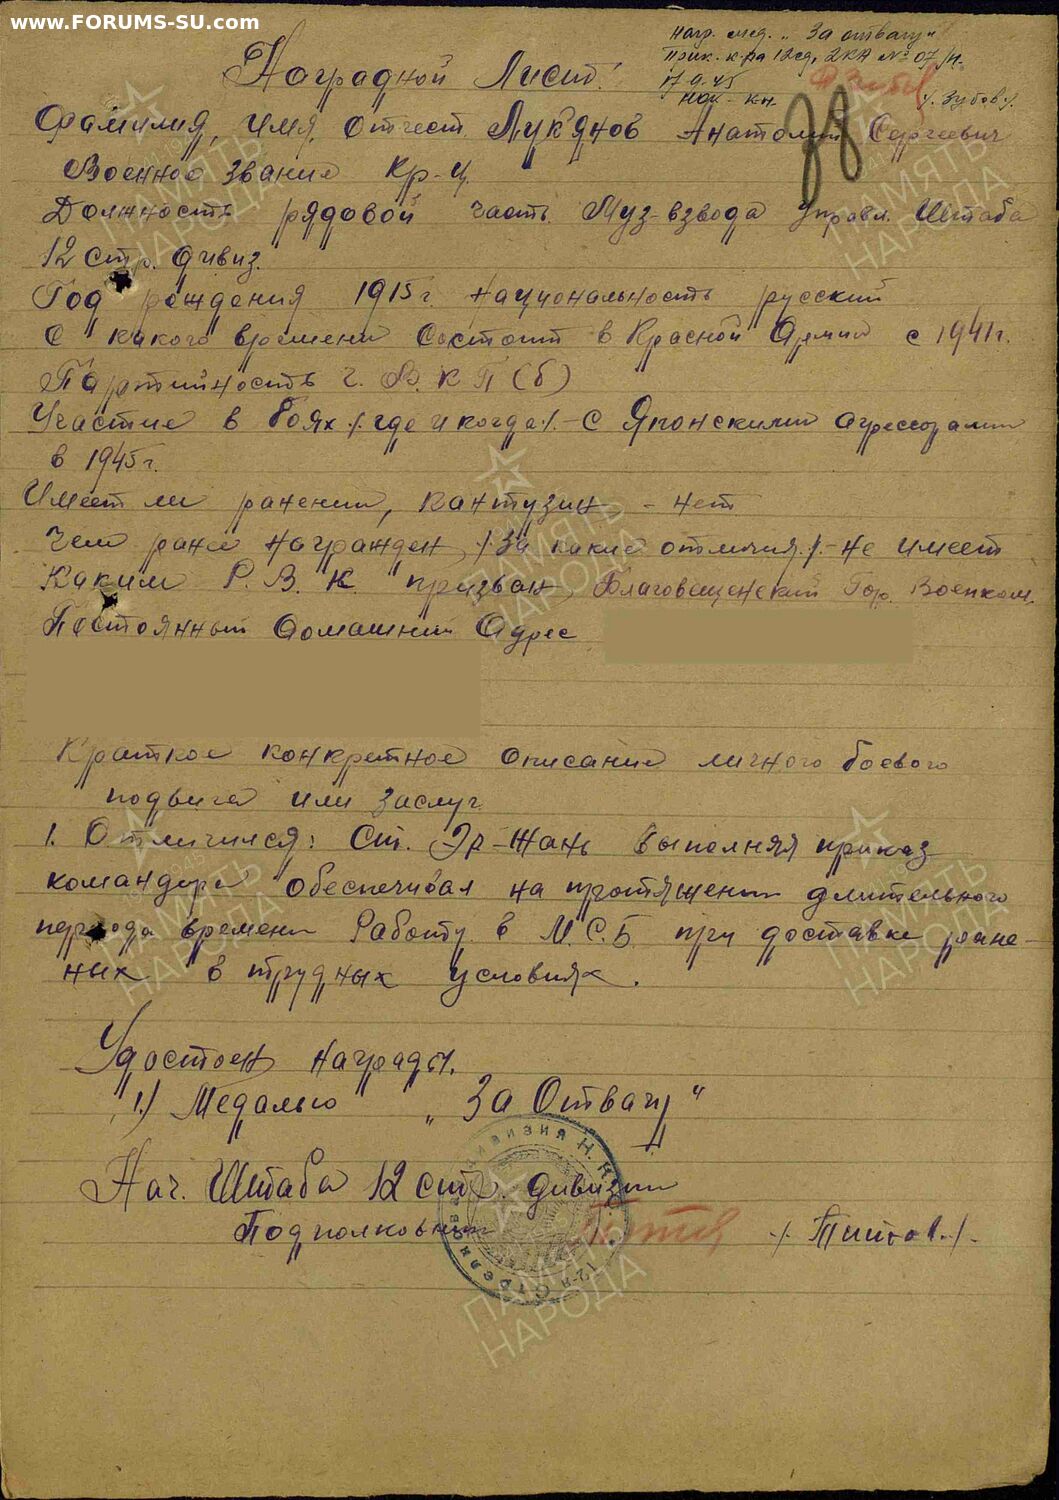 www.FORUMS-SU.com
нагр. мед. „За отвагу"
Прик. к-ра 12сд, 2КА № 07/н.
17-9-45
нок-кн. /. Зубов /.
78
Наградной Лист.
Фамилия, имя, отчест. Лукянов Анатолий Сергеевич
Военное звание Кр-ц.
Должность рядовой часть Муз-взвода управл. Штаба
12 стр. дивиз.
Год рождения 1915 г. национальность русский
С какого времени состоит в Красной Армии с 1941 г.
Партийность ч. В.К.П(б)
Участие в боях /. где и когда /. - С Японскими агрессорами
в 1945 г.
Имеет ли ранении, кантузии - нет
Чем ранее награжден, /. За какие отличия. /. - не имеет
Каким Р.В.К. призван, Благовещенский Гор. Военком.
Постоянный домашний Адрес
Краткое конкретное описание личного боевого
подвига или заслуг
1. Отличился: Ст. Эр-Жань выполняя приказ
командира обеспечивал на протяжении длительного
периода времени Работу в М.С.Б. при доставке ране-
ных в трудных условиях.
Удостоен награды.
1.) Медалью „За Отвагу"
Нач. Штаба 12 стр. дивизии
Подполковник Титов /. Титов. /.
ПАМЯТЬ НАРОДА